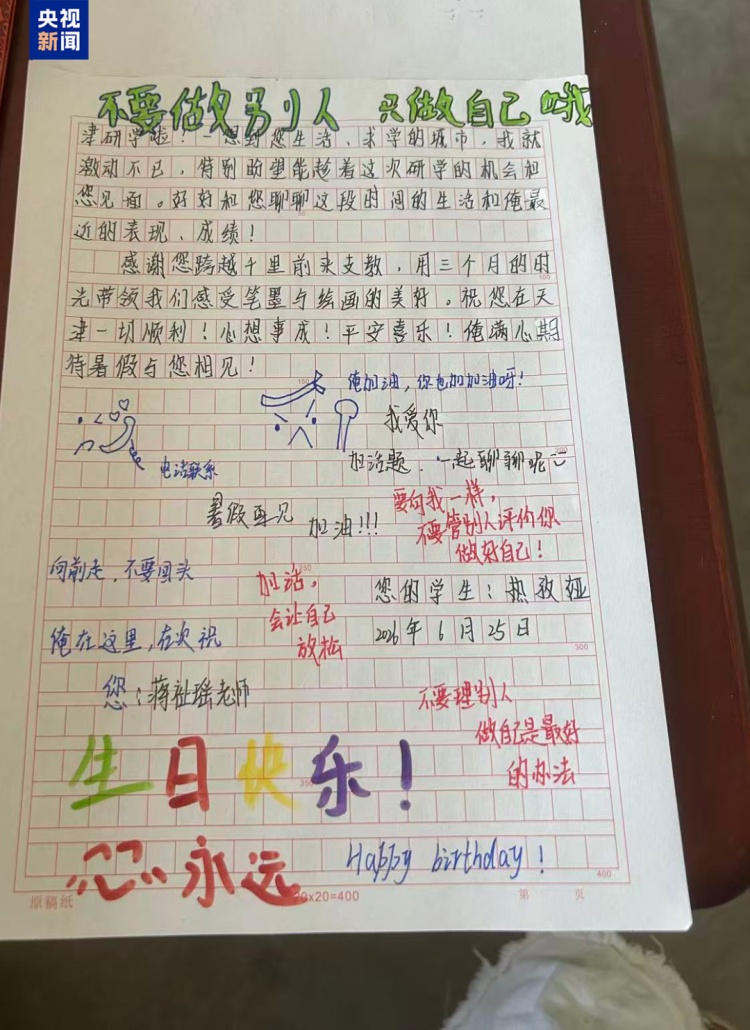 央视
新闻
不要做别人 只做自己哦
津研学啦！一想到您生活、求学的城市，我就
激动不已，特别盼望能趁着这次研学的机会和
您见面。好好和您聊聊这段时间的生活和俺最
近的表现、成绩！
感谢您跨越千里前来支教，用三个月的时
光带领我们感受笔墨与绘画的美好。祝您在天
津一切顺利！心想事成！平安喜乐！俺满心期
待暑假与您相见！
俺加油，你也加加油呀！
我爱你
电话联系
加话题．一起聊聊呢
暑假再见
加油!!!
要向我一样，
不要管别人评价你
做好自己！
向前走，不要回头
加话，
会让自己
放松
您的学生：热孜娅
2026年6月25日
俺在这里，在次祝
您：蒋祉瑶老师
不要理别人
做自己是最好
的办法
生日快乐！
永远
Happy birthday!
原稿纸
20x20=400
第 页
100
150
300
400